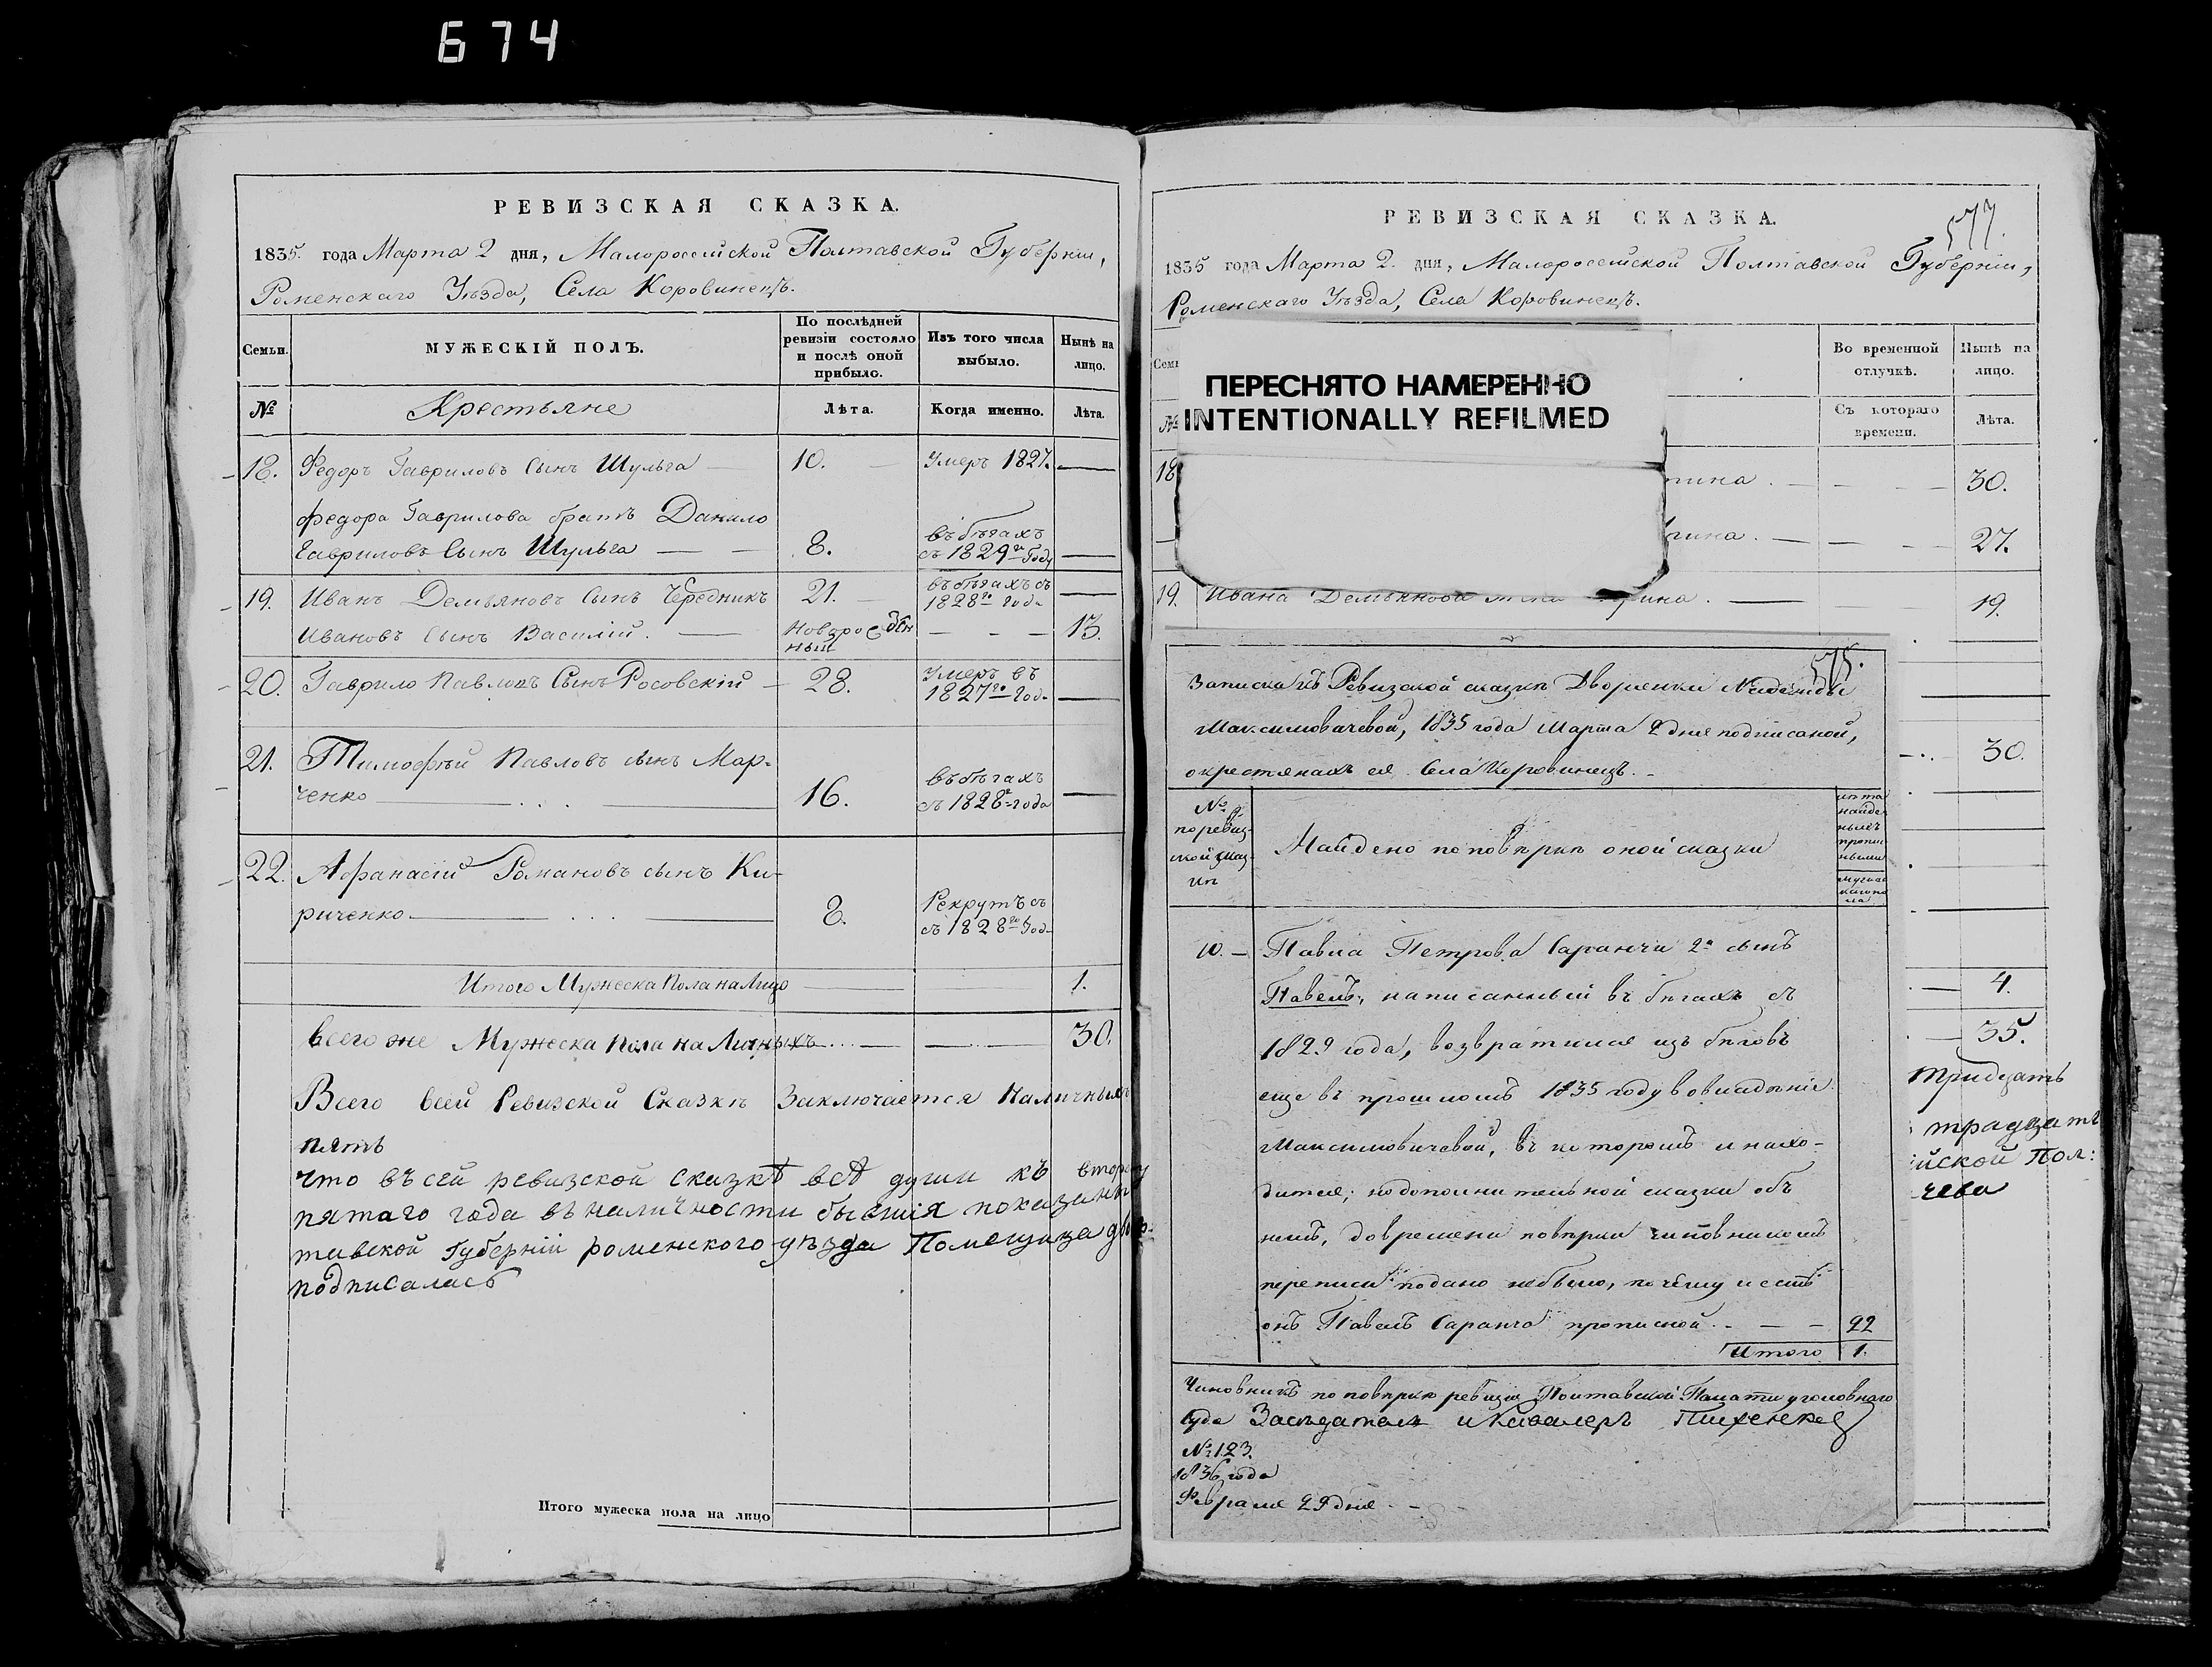 674
РЕВИЗСКАЯ СКАЗКА.
1835. года Марта 2 дня, Малоросейской Полтавской Губерніи,
Роменскаго Уѣзда, Села Коровинецъ.
Семьи. МУЖЕСКІЙ ПОЛЪ. По послѣдней ревизіи состояло и послѣ оной прибыло. Изъ того числа выбыло. Нынѣ на лицо.
№ Крестьяне Лѣта. Когда именно. Лѣта.
18. Федоръ Гавриловъ Сынъ Шульга 10. Умеръ 1827. —
Федора Гаврилова братъ Данило
Гавриловъ Сынъ Шульга — — 8. въ бѣгахъ съ 1829го Году —
19. Иванъ Демьяновъ Сынъ Чередникъ 21. въ бѣгахъ съ 1828го год. —
Ивановъ Сынъ Василій. — Новорожденный — - — 13.
20. Гаврило Павловъ Сынъ Росовскій — 28. Умеръ въ 1827го год. —
21. Тимофѣй Павловъ сынъ Мар-
ченко — . . . — 16. въ бѣгахъ съ 1828го года —
22. Афанасій Романовъ сынъ Ки-
риченко — . . . — 8. Рекрутъ съ съ 1828го год.
Итого Мужеска Пола на Лицо — 1.
Всего же Мужеска пола на Личныхъ... — — 30.
Всего всей Ревизской Сказкѣ Заключается Наличныхъ
пять
что въ сей ревизской сказкѣ всѣ души къ второму
пятаго года въ наличности бывшія показаны
тавской Губерній роменского уѣзда Помещица двор:
подписалась
Итого мужеска пола на лицо
577.
РЕВИЗСКАЯ СКАЗКА.
1835 года Марта 2. дня, Малоросейской Полтавской Губерніи,
Роменскаго Уѣзда, Села Коровинецъ.
Во временной отлучкѣ. Нынѣ на лицо.
№ Съ котораго времени. Лѣта.
ПЕРЕСНЯТО НАМЕРЕННО
INTENTIONALLY REFILMED
18 — — — 30.
— — — 27.
19. Ивана Демьянова жена — 19.
30.
4.
35.
тридцать
традцать
йской Пол:
чева
575.
Записка къ Ревизской сказкѣ Дворянки Надежды
Максимовичевой, 1835 года Марта 2 дня подписаной,
о крестянахъ ея Села Коровинецъ. -
№ по ревизской сказкѣ Найдено по повѣркѣ оной сказки
10. — Павла Петрова Саранчи 2й сынъ
Павелъ, написанный въ бѣгахъ съ
1829 года, возвратился изъ бѣговъ
еще въ прошломъ 1835 году во владѣніе
Максимовичевой, въ которомъ и нахо-
дится; но дополнительной сказки объ
немъ, до времени повѣрки чиновникомъ
переписи подано небыло, по чему и есть
онъ Павелъ Саранча прописной. - — — 22
Итого 1.
Чиновникъ по повѣркѣ ревизіи Полтавской Палаты уголовнаго
Суда Засѣдатель и Кавалеръ
№ 123.
1836 года
Февраля 29 дня. -